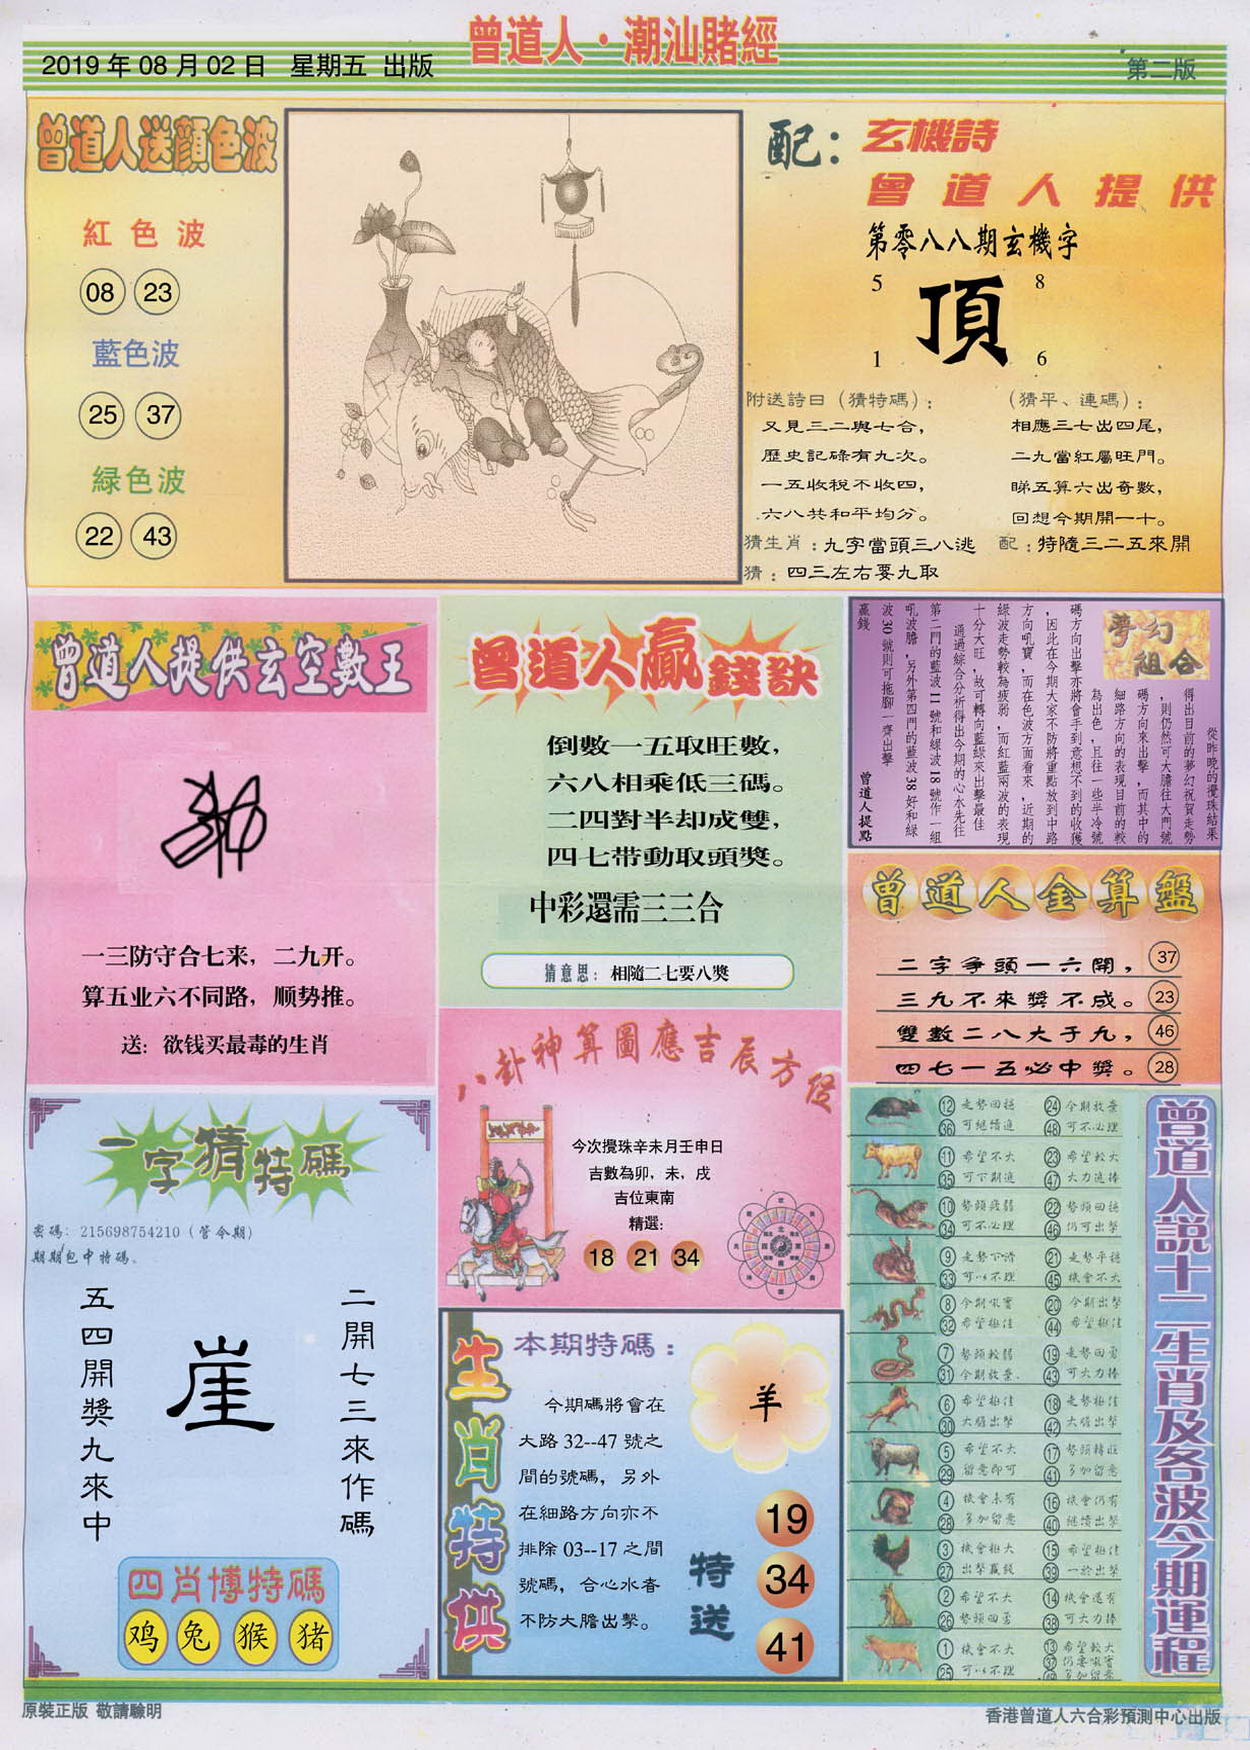 曾道人·潮汕賭經
2019年08月02日 星期五 出版
第二版
曾道人送顔色波
紅色波
08 23
藍色波
25 37
緑色波
22 43
配：玄機詩
曾道人提供
第零八八期玄機字
5 8
頂
1 6
附送詩曰（猜特碼）：
又見三二與七合，
歷史記碌有九次。
一五收稅不收四，
六八共和平均分。
（猜平、連碼）：
相應三七出四尾，
二九當紅屬旺門。
睇五算六出奇數，
回想今期開一十。
猜生肖：九字當頭三八逃 配：特隨三二五來開
猜：四三左右要九取
曾道人提供玄空數王
一三防守合七来，二九开。
算五业六不同路，顺势推。
送：欲钱买最毒的生肖
曾道人贏錢訣
倒數一五取旺數，
六八相乘低三碼。
二四對半却成雙，
四七带動取頭獎。
中彩還需三三合
猜意思：相隨二七要八獎
夢幻組合
從昨晚的攪珠結果
得出目前的夢幻祝賀走勢
，則仍然可大膽往大門號
碼方向來出擊，而其中的
細路方向的表現目前的較
為出色，且往一些半冷號
碼方向出擊亦將會手到意想不到的收獲
，因此在今期大家不防將重點放到中路
方向吼寶，而在色波方面看來，近期的
綠波走勢較為疲弱，而紅藍兩波的表現
十分大旺，故可轉向藍綠來出擊最佳
通過綜合分析得出今期的心水先往
第二門的藍波11號和綠波18號作一組
吼波膽，另外第四門的藍波38好和綠
波30號則可拖腳一齊出擊
贏錢
曾道人提點
曾道人金算盤
二字争頭一六開， 37
三九不來獎不成。 23
雙數二八大于九， 46
四七一五必中獎。 28
八卦神算圖應吉辰方位
今次攪珠辛未月壬申日
吉數為卯，未，戌
吉位東南
精選：
18 21 34
一字猜特碼
密碼：215698754210（管今期）
期期包中特碼。
二開七三來作碼
崖
五四開獎九來中
四肖博特碼
鸡 兔 猴 猪
生肖特供
本期特碼：
羊
今期碼將會在
大路32--47號之
間的號碼，另外
在細路方向亦不
排除03--17之間
號碼，合心水者
不防大膽出擊。
特送
19
34
41
曾道人説十二生肖及各波今期運程
12 走勢回穩 24 今期放棄
36 可繼續追 48 可不必理
11 希望不大 23 希望較大
35 可下期追 47 大力追捧
10 勢頭疲弱 22 勢頭回穩
34 可不必理 46 仍可出擊
9 走勢下滑 21 走勢平穩
33 可以不理 45 機會不大
8 今期吼寶 20 今期出擊
32 希望極佳 44 希望極佳
7 勢頭較弱 19 走勢回勇
31 今期放棄 43 可大力捧
6 希望極佳 18 走勢極佳
30 大膽出擊 42 大膽出擊
5 希望不大 17 勢頭轉旺
29 留意即可 41 多加留意
4 機會未有 16 機會仍有
28 多加留意 40 繼續出擊
3 機會極大 15 希望極佳
27 出擊贏錢 39 一於出擊
2 希望不大 14 機會還有
26 勢頭回勇 38 可大力捧
1 機會不大 13 希望較大
25 可以不理 37 仍要吼實
49 多加留意
原裝正版 敬請驗明
香港曾道人六合彩預測中心出版